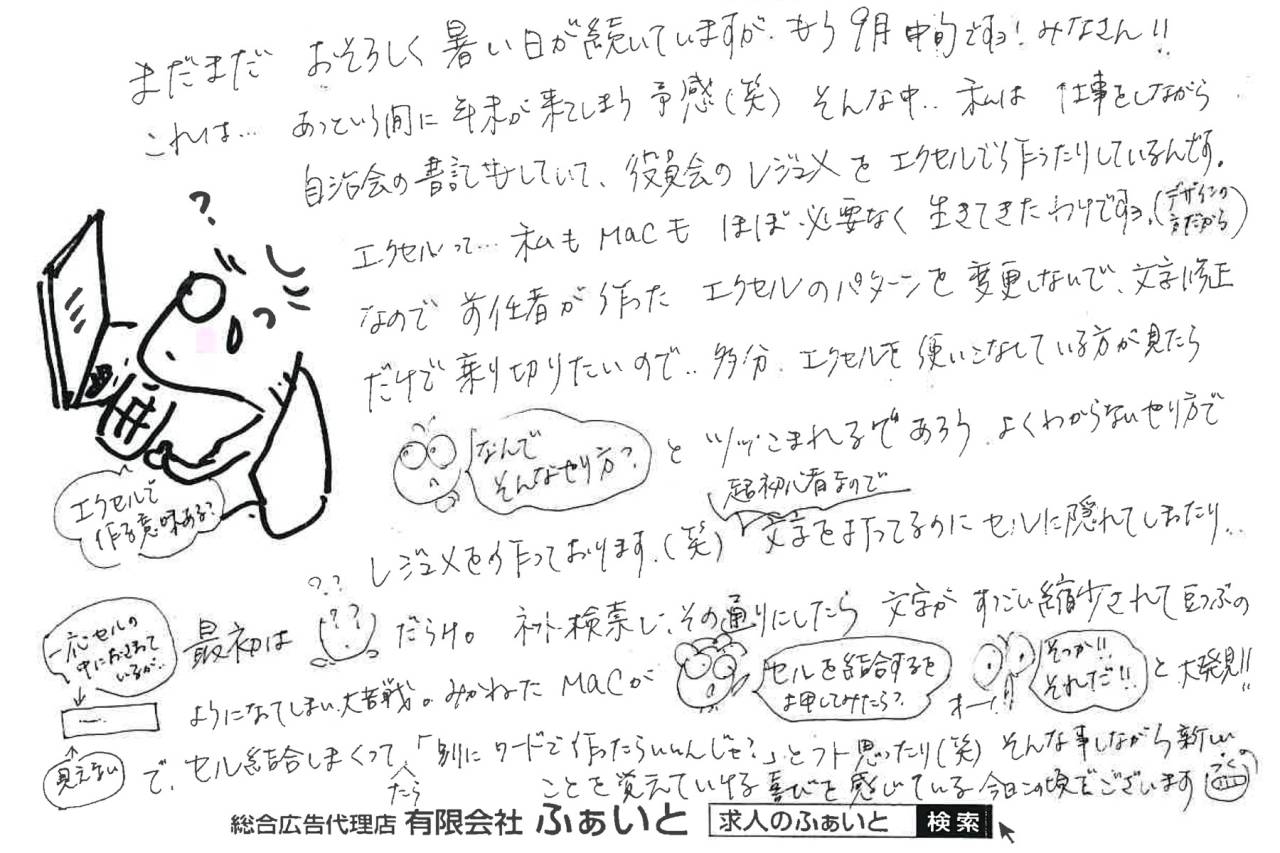 まだまだ おそろしく暑い日が続いていますが、もう9月中旬ですョ!みなさん!!
これは… あっという間に年末が来てしまう予感(笑) そんな中.. 私は 仕事をしながら
自治会の書記もしていて、役員会のレジュメをエクセルで作ったりしているんです。
エクセルって… 私もMACも ほぼ必要なく生きてきたわけですョ。(デザインの方だから)
なので前任者が作った エクセルのパターンを変更しないで、文字修正
だけで乗り切りたいので.. 多分、エクセルを使いこなしている方が見たら
なんで
そんなやり方?
と ツッこまれるであろう、よくわからないやり方で
エクセルで
作る意味ある?
超初心者なので
レジュメを作っております。(笑) 文字を打ってるのにセルに隠れてしまったり..
一応セルの
中におさまって
いるが..
見えない
最初は ??だらけ。 ネット検索し、その通りにしたら 文字が すっごい縮小されて豆つぶの
ようになってしまい、大苦戦。みかねたMACが
セルを結合するを
押してみたら?
オー!
そっか!!
それだ!!
と大発見!!
で、セル結合しまくってたら、「別にワードで作ったらいいんじゃ?」とフト思ったり(笑) そんな事しながら新しい
ことを覚えていける喜びを感じている今日この頃でございます
ふく
総合広告代理店 有限会社 ふぁいと 求人のふぁいと 検索